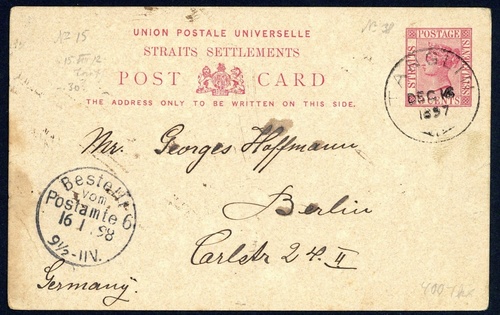 UNION POSTALE UNIVERSELLE
STRAITS SETTLEMENTS
POST CARD
THE ADDRESS ONLY TO BE WRITTEN ON THIS SIDE.
STRAITS
POSTAGE
SETTLEMENTS
CENTS
DEC 16
1897
Mr. Georges Hoffmann
Berlin
Carlstr 24. II
Germany.
Bestellt
vom
Postamte 6
16 1 98
9½-11V.